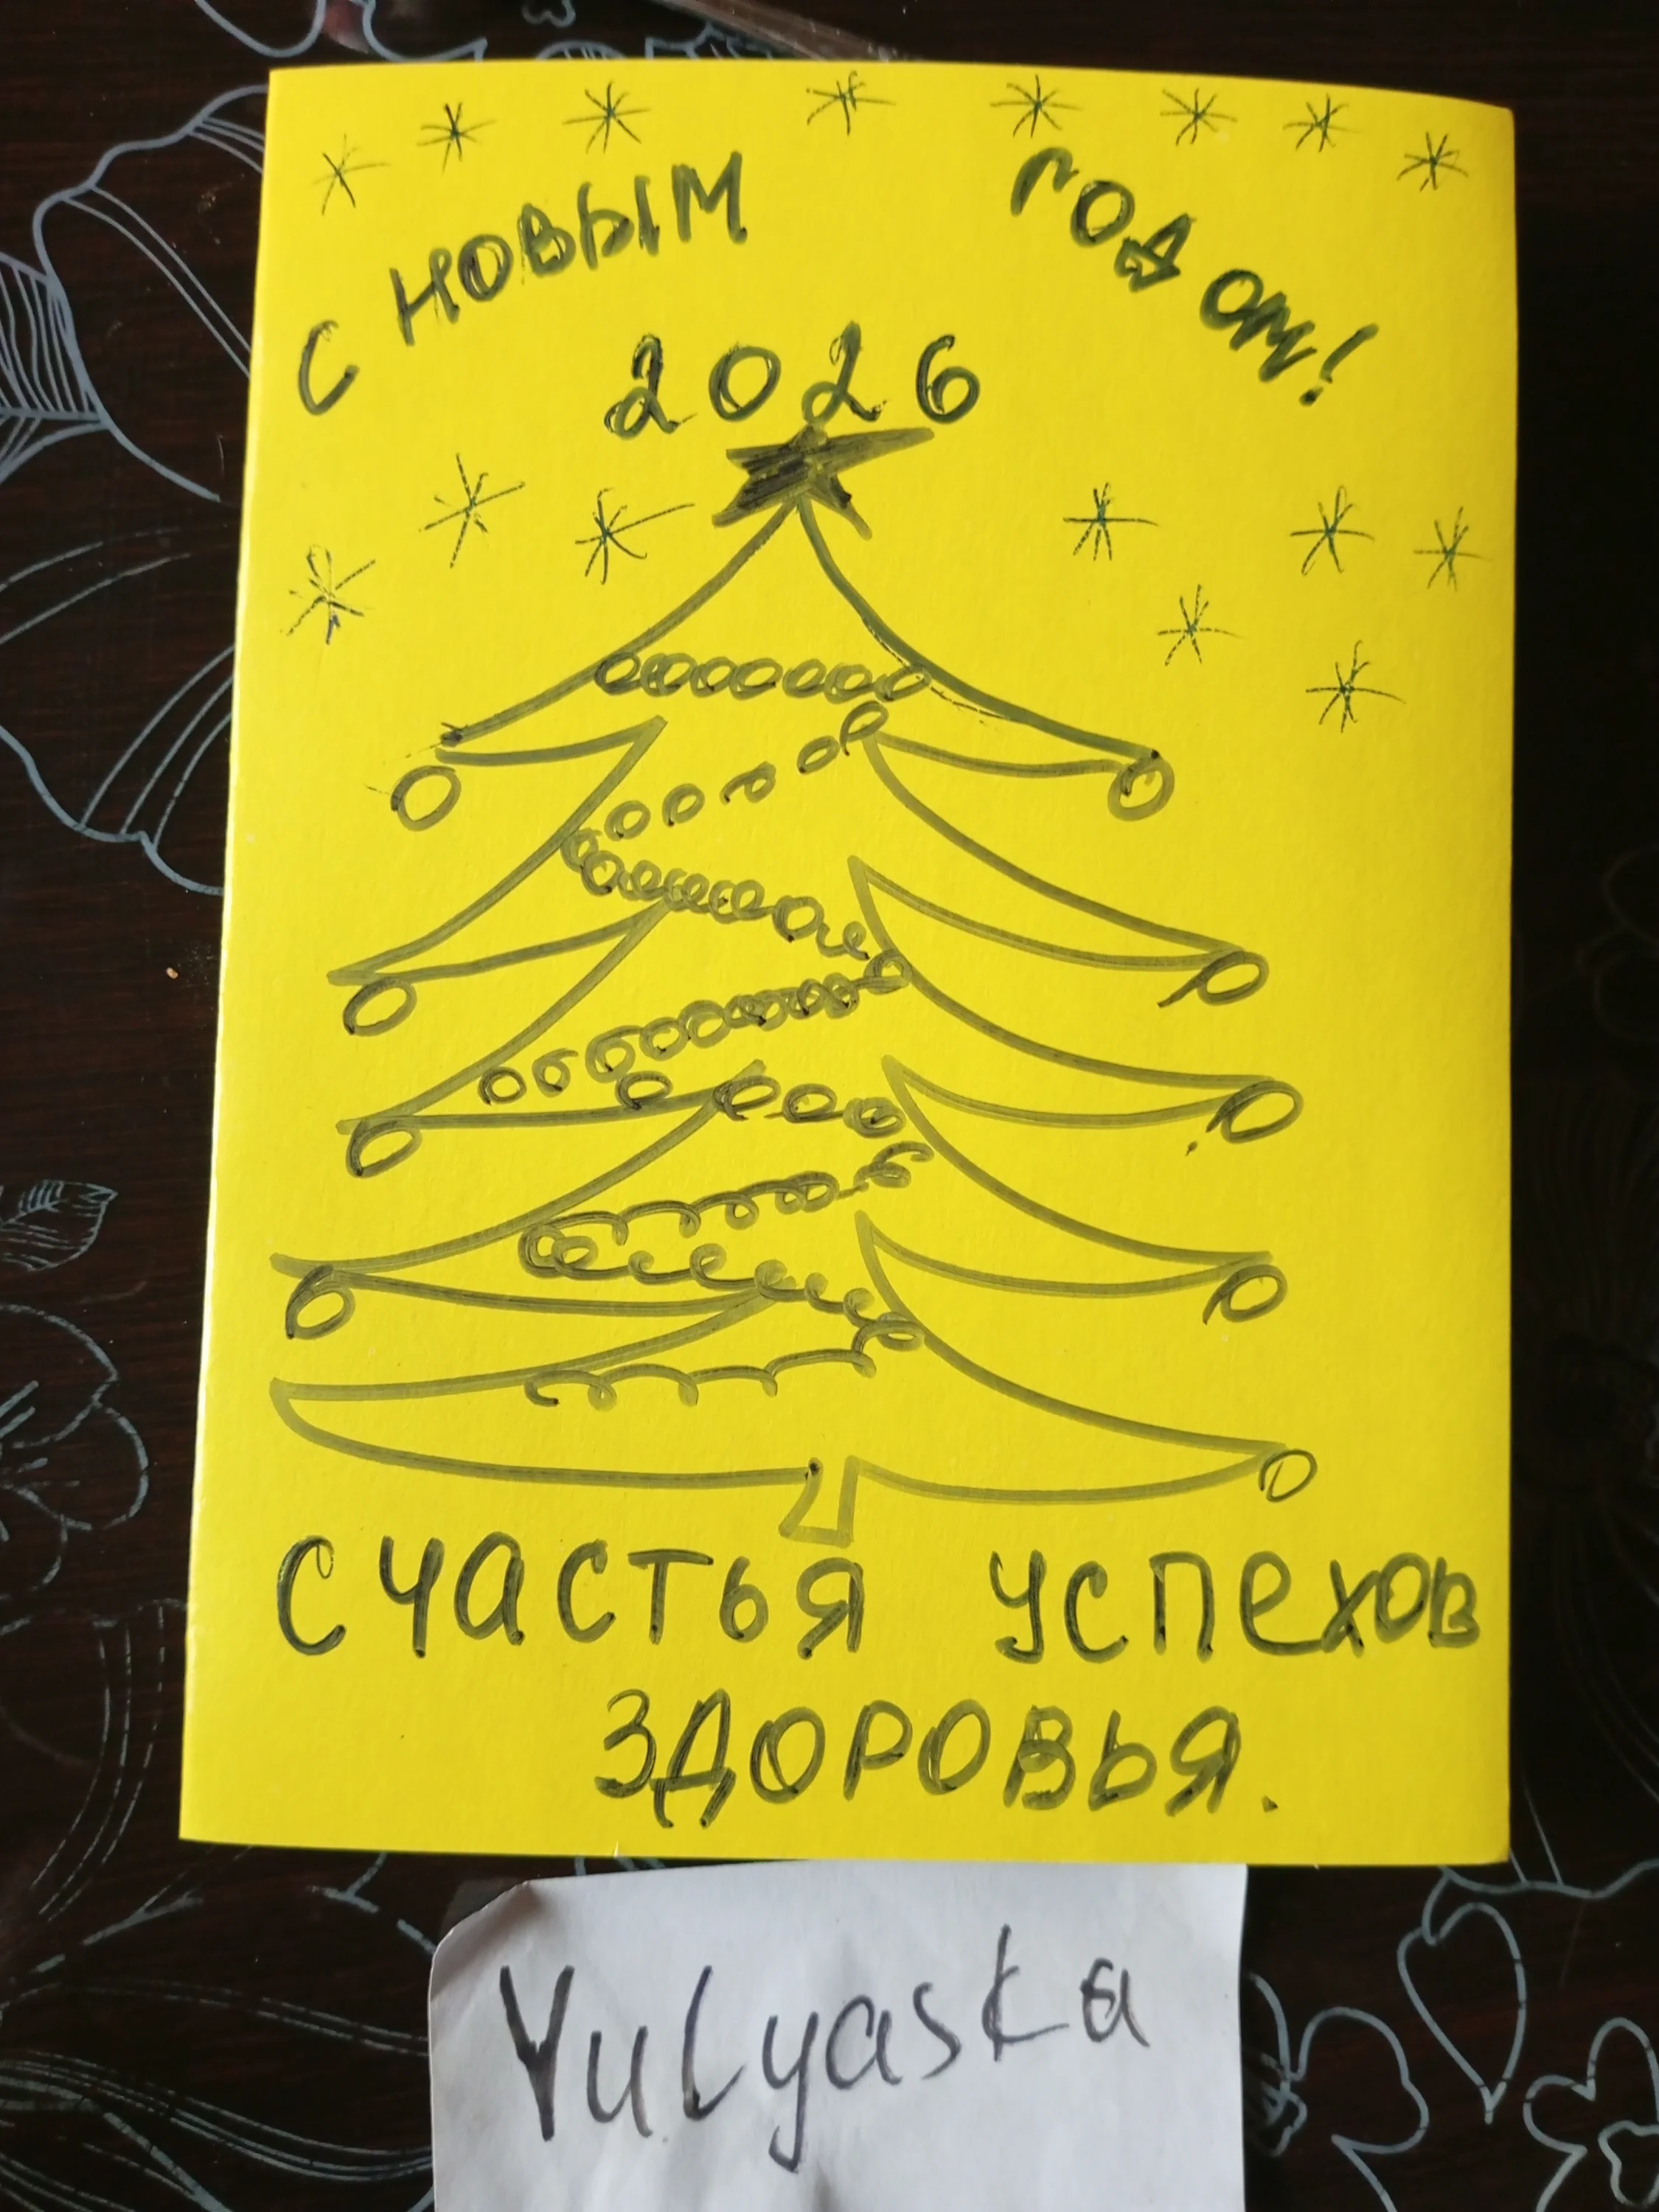 С НОВЫМ ГОДОМ!
2026
СЧАСТЬЯ УСПЕХОВ
ЗДОРОВЬЯ.
Yulyaska